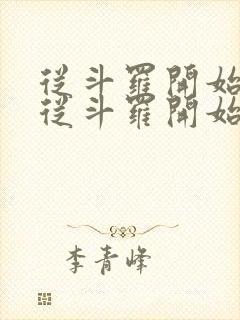 從斗羅開始
從斗羅開始
李青峰